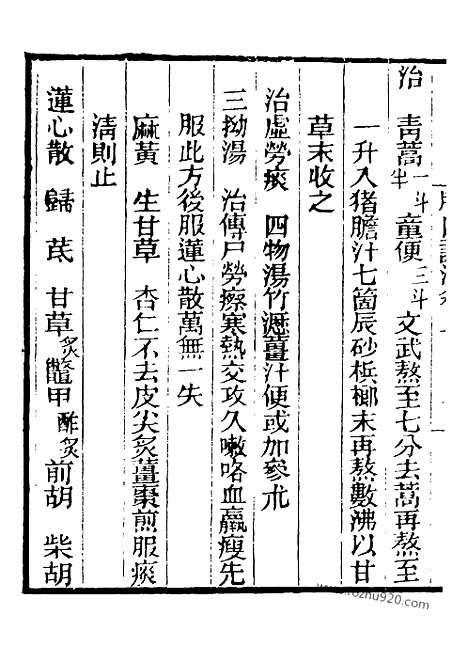 治 青蒿一斗半 童便三斗 文武熬至七分去蒿再熬至
一升入猪膽汁七箇辰砂檳榔末再熬數沸以甘
草末收之
治虛勞痰 四物湯竹瀝薑汁便或加參朮
三拗湯 治傳尸勞瘵寒熱交攻久嗽咯血羸瘦先
服此方後服蓮心散萬無一失
麻黃 生甘草 杏仁不去皮尖炙薑棗煎服痰
清則止
蓮心散 歸 芪 甘草炙 鱉甲醋炙 前胡 柴胡
www.rozhu920.com